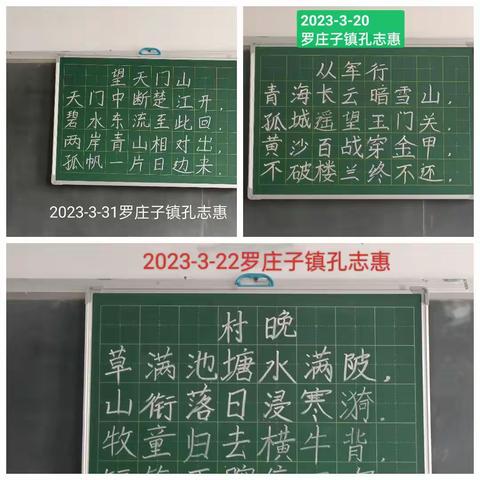 望天门山
天门中断楚江开，
碧水东流至此回。
两岸青山相对出，
孤帆一片日边来。
2023-3-31罗庄子镇孔志惠
2023-3-20
罗庄子镇孔志惠
从军行
青海长云暗雪山，
孤城遥望玉门关。
黄沙百战穿金甲，
不破楼兰终不还。
2023-3-22罗庄子镇孔志惠
村晚
草满池塘水满陂，
山衔落日浸寒漪。
牧童归去横牛背，